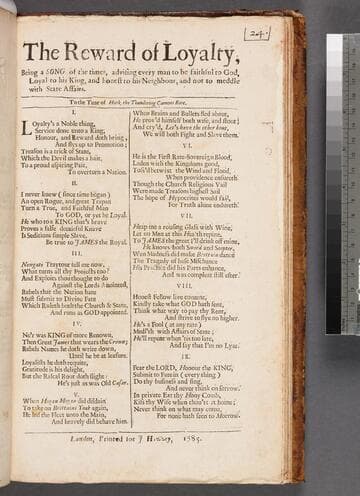 [24.]
The Reward of Loyalty,
Being a SONG of the times, advising every man to be faithful to God,
Loyal to his King, and honest to his Neighbour, and not to meddle
with State Affairs.
To the Tune of Hark, the Thundring Cannons Rore.
I.
Loyalty's a Noble thing,
Service done unto a King,
Honour, and Reward doth bring;
And flys up to Promotion;
Treason is a trick of State,
Which the Devil makes a bait,
To a proud aspiring Pate,
To overturn a Nation.
II.
I never knew (since time began)
An open Rogue, and secret Trapan
Turn a True, and Faithful Man
To GOD, or yet be Loyal.
He who to a KING that's brave
Proves a false deceitful Knave
In Seditions simple Slave,
Be true to JAMES the Royal.
III.
Newgate Traytour tell me now,
What turns all thy Projects too?
And Exploits thou thought to do
Against the Lords Anointed,
Rebels that the Nation hate
Must submit to Divine Fate
Which Ruleth both the Church & State,
And runs as GOD appointed.
IV.
Ne'r was KING of more Renown,
Then Great James that wears the Crown;
Rebels Names he doth write down,
Until he be at leasure.
Loyalists he doth requite,
Gratitude is his delight,
But the Rascal Root doth slight:
He's just as was Old Cæsar.
V.
When Hogan Mogan did disdain
To take on Brittains Yoak again,
He set his Fleet unto the Main,
And bravely did behave him.
When Brains and Bullets fled about,
He prov'd himself both wise, and stout;
And cry'd, Let's have the other bout,
We will both Fight and Slave them.
VI.
He is the First Rate-Sovereign Blood,
Laden with the Kingdoms good,
Toss'd betwixt the Wind and Flood,
When providence ensureth
Though the Church Religious Vail
Were made Treasons highest Sail
The hope of Hypocrites would fail,
For Truth alone endureth.
VII.
Help me a rousing Glass with Wine,
Let no Man at this Health repine,
To JAMES the great I'll drink off mine,
He knows both Sword and Scepter,
Wen Madness did make Brittain dance
The Tragedy of base Mischance
His Practice did his Parts enhance,
And was compleat still after.
VIII.
Honest Fellow live content,
Kindly take what GOD hath sent,
Think what way to pay thy Rent,
And strive to fly no higher.
He's a Fool (at any rate)
Medl'th with Affairs of State;
He'll repent when 'tis too late,
And say that I'm no Lyar.
IX.
Fear the LORD, Honour the KING,
Submit to Fate in (every thing)
Do thy business and sing,
And never think on sorrow.
In private Eat thy Hony Comb,
Kiss thy Wife when thou'rt at home;
Never think on what may come,
For none hath seen to Morrow.
London, Printed for J 1685.